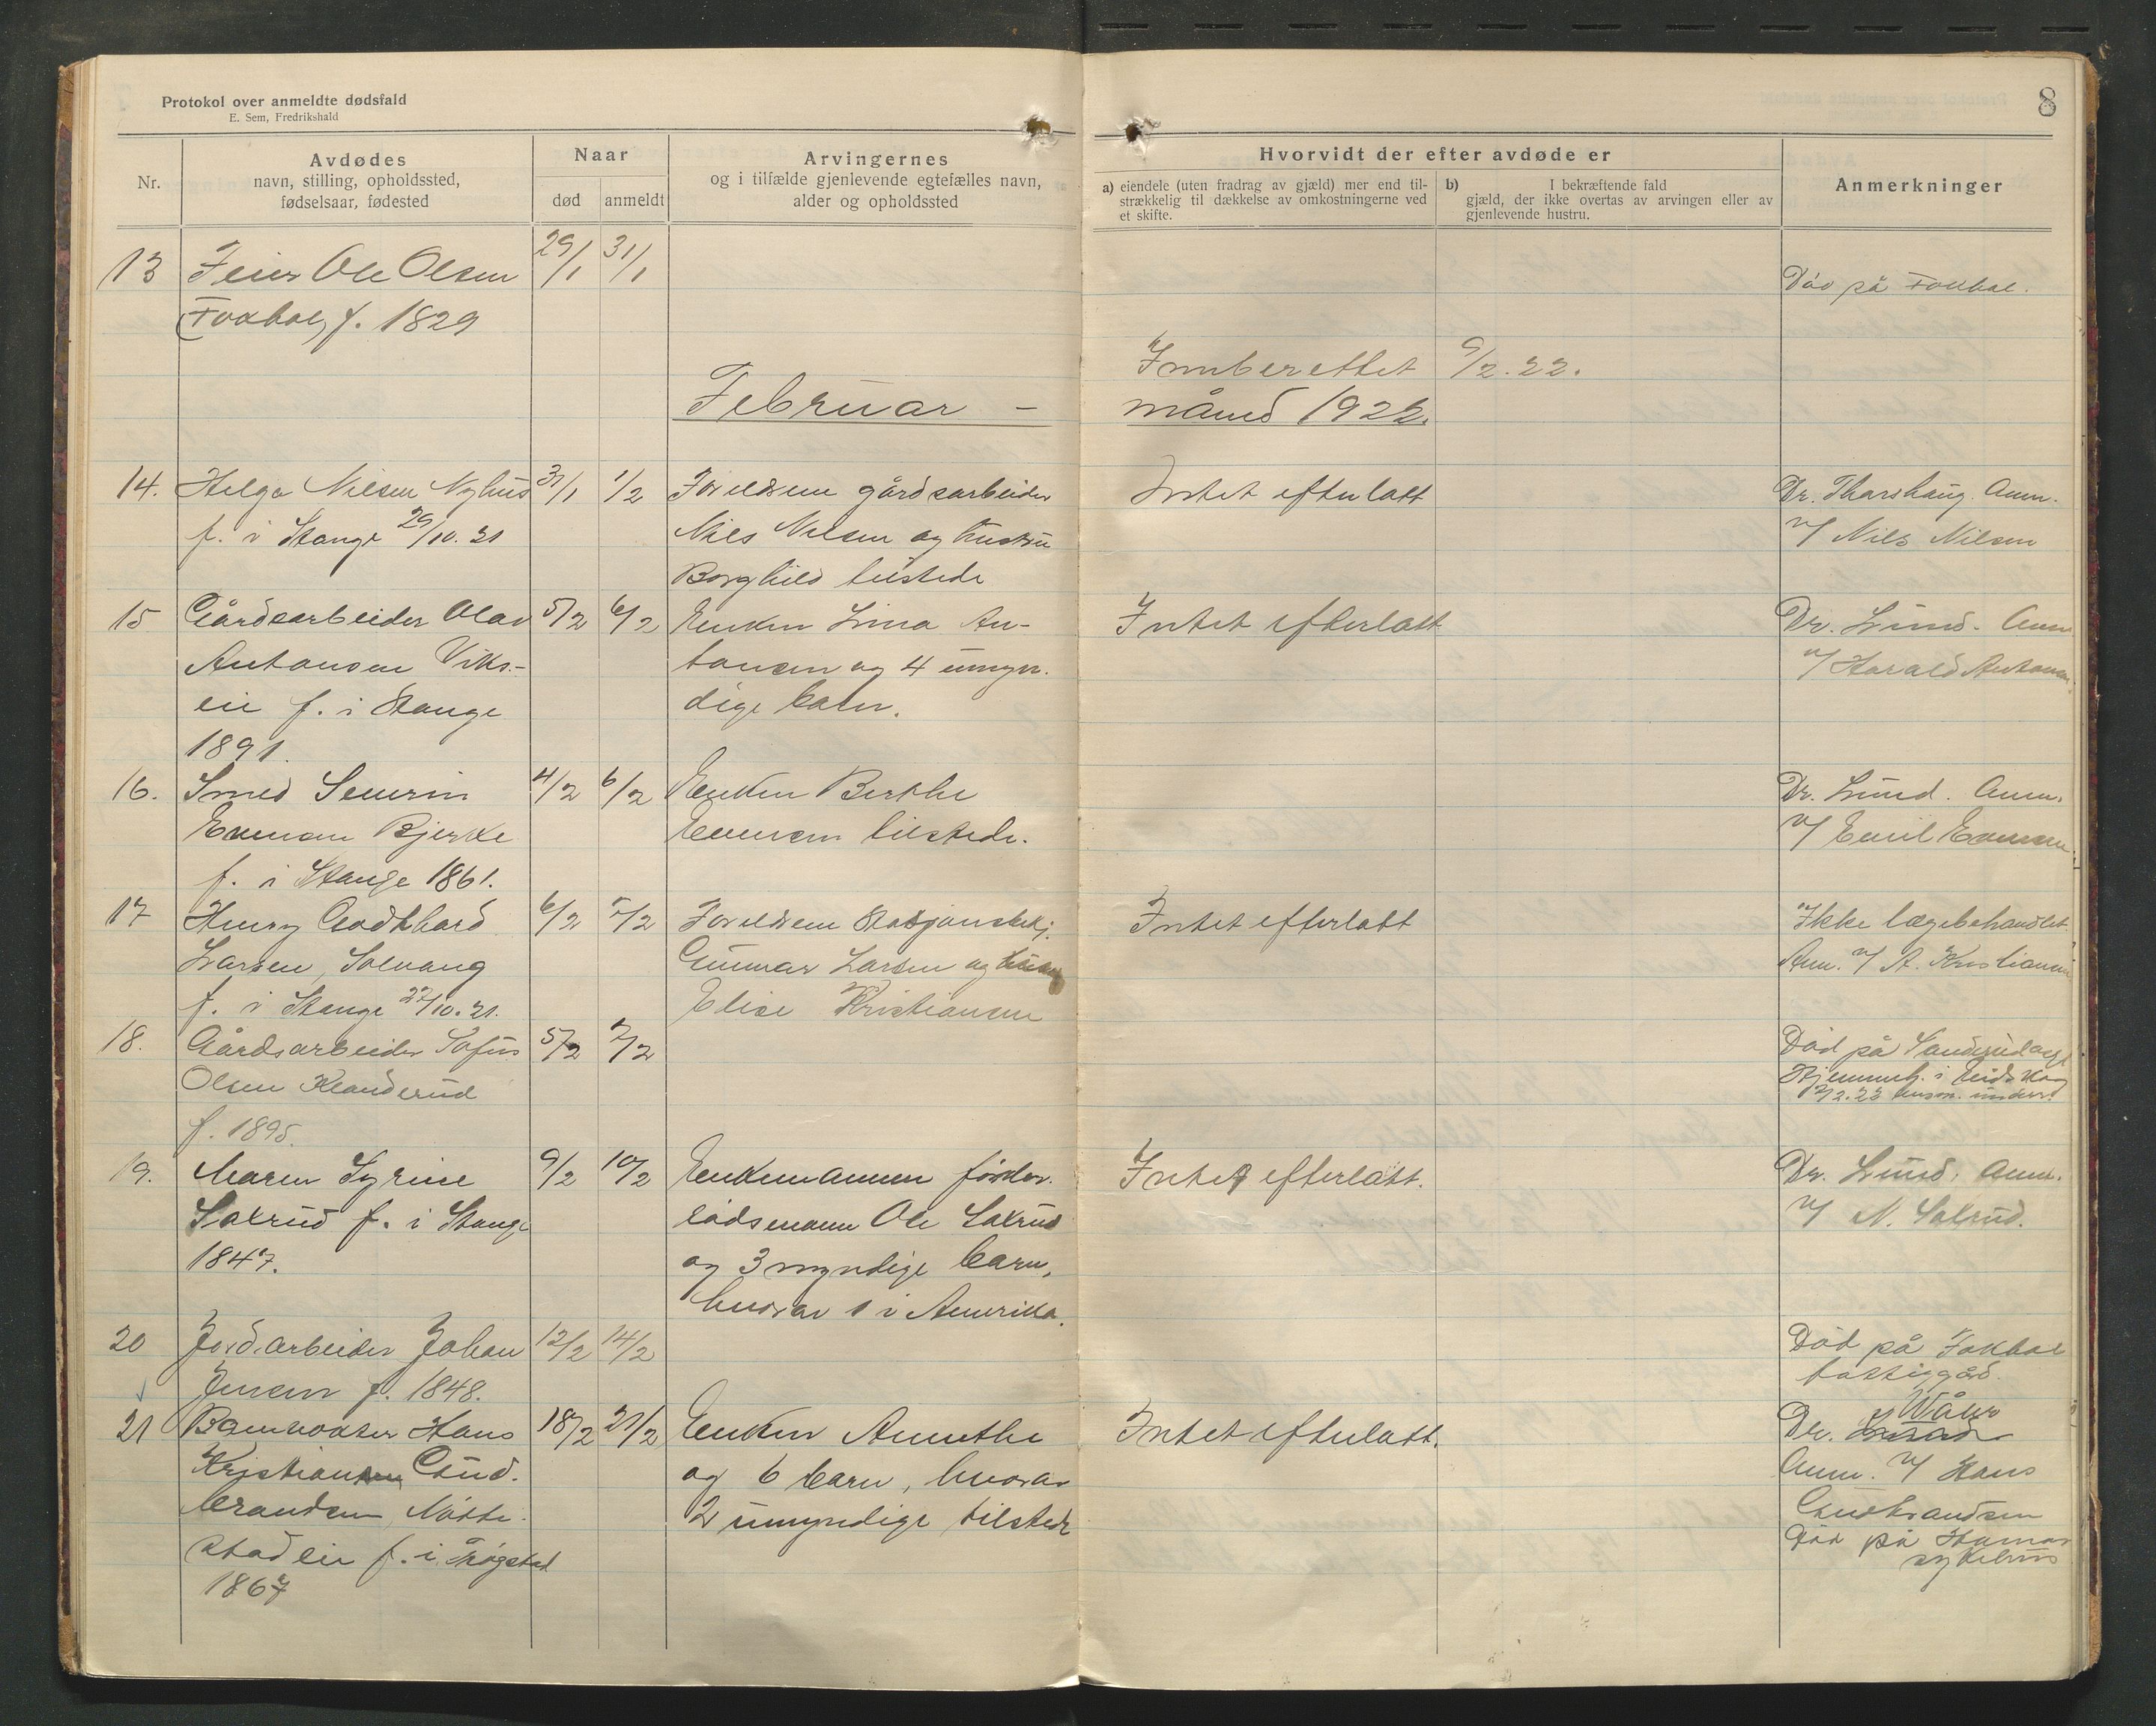 Protokol over anmeldte dødsfald
E. Sem, Fredrikshald
8
Nr.
Avdødes
navn, stilling, opholdssted,
fødselsaar, fødested
Naar
død
anmeldt
Arvingernes
og i tilfælde gjenlevende egtefælles navn,
alder og opholdssted
Hvorvidt der efter avdøde er
a) eiendele (uten fradrag av gjæld) mer end til-
strækkelig til dækkelse av omkostningerne ved
et skifte.
b) I bekræftende fald
gjæld, der ikke overtas av arvingen eller av
gjenlevende hustru.
Anmerkninger
13 Ole Olsen 29/1 31/1
f. 1829
Død på Fokhol.
Innberettet 9/2.22.
Februar - måned 1922.
14. Helga Nilsen Nyhus 31/1 1/2 Foreldrene gårdsarbeider Intet efterlatt Dr. Thorshaug. Anm.
f. i Stange 29/10.21 Nils Nilsen og hustru v/ Nils Nilsen
Borghild tilstede
15 Gårdsarbeider Olav 5/2 6/2 Enken Lina An- Intet efterlatt Dr. Lund. Anm
Antonsen Viks- tonsen og 4 umyn- v/ Harald Antonsen.
eie f. i Stange dige barn.
1891.
16. Smed Severin 4/2 6/2 Enken Berthe Dr. Lund. Anm.
Evensen Bjerke Evensen tilstede. v/ Emil Evensen.
f. i Stange 1861.
17 Henry Godthard 6/2 7/2 Foreldrene Stasjonsbetj. Intet efterlatt Ikke lægebehandlet.
Larsen, Solvang Gunnar Larsen og Anm. v/ A. Kristiansen
f. i Stange 22/10.21. Elise Kristiansen
18. Gårdsarbeider Sofus 5/2 7/2 Død på Sanderud asyl
Olsen Klanderud Hjemmeh. i Eidskog
f. 1895.
19. Maren Syrine 9/2 10/2 Enkemannen fhv. Intet efterlatt. Dr. Lund. Anm.
Salrud f. i Stange Ole Salrud v/ N. Salrud.
1847. og 3 myndige barn,
hvorav 1 i Amerika.
20 Jordarbeider Johan 12/2 14/2 Død på Fokhol
Jensen f. 1848. fattiggård.
21 Banevokter Hans 18/2 21/2 Enken Annethe Intet efterlatt. Dr. Wåler
Kristiansen Gud- og 6 barn, hvorav Anm. v/ Hans
brandsen, Nøtte- 2 umyndige tilstede Gudbrandsen
stadeie f. i Død på Hamar
1867 sykehus